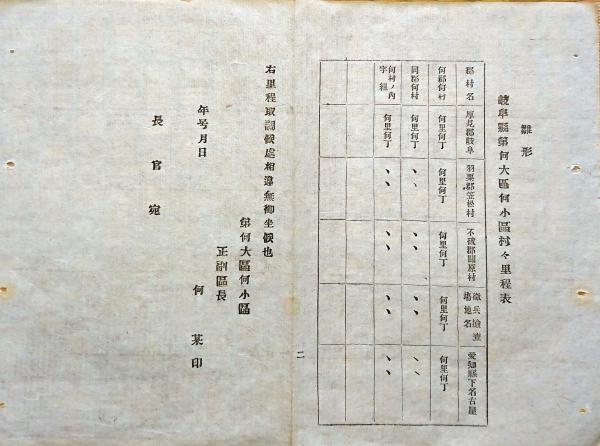 雛形
岐阜縣第何大區何小區村々里程表
郡村名 厚見郡岐阜 羽栗郡笠松村 不破郡關原村 徵兵檢査場地名 愛知縣下名古屋
何郡何村 何里何丁 何里何丁 何里何丁 何里何丁 何里何丁
同郡何村 何里何丁 〻 〻 〻 〻
何村ノ內字組 何里何丁 〻 〻 〻 〻
右里程取調候處相違無御坐候也
第何大區何小區
正副區長
年号月日
何某印
長官宛
二